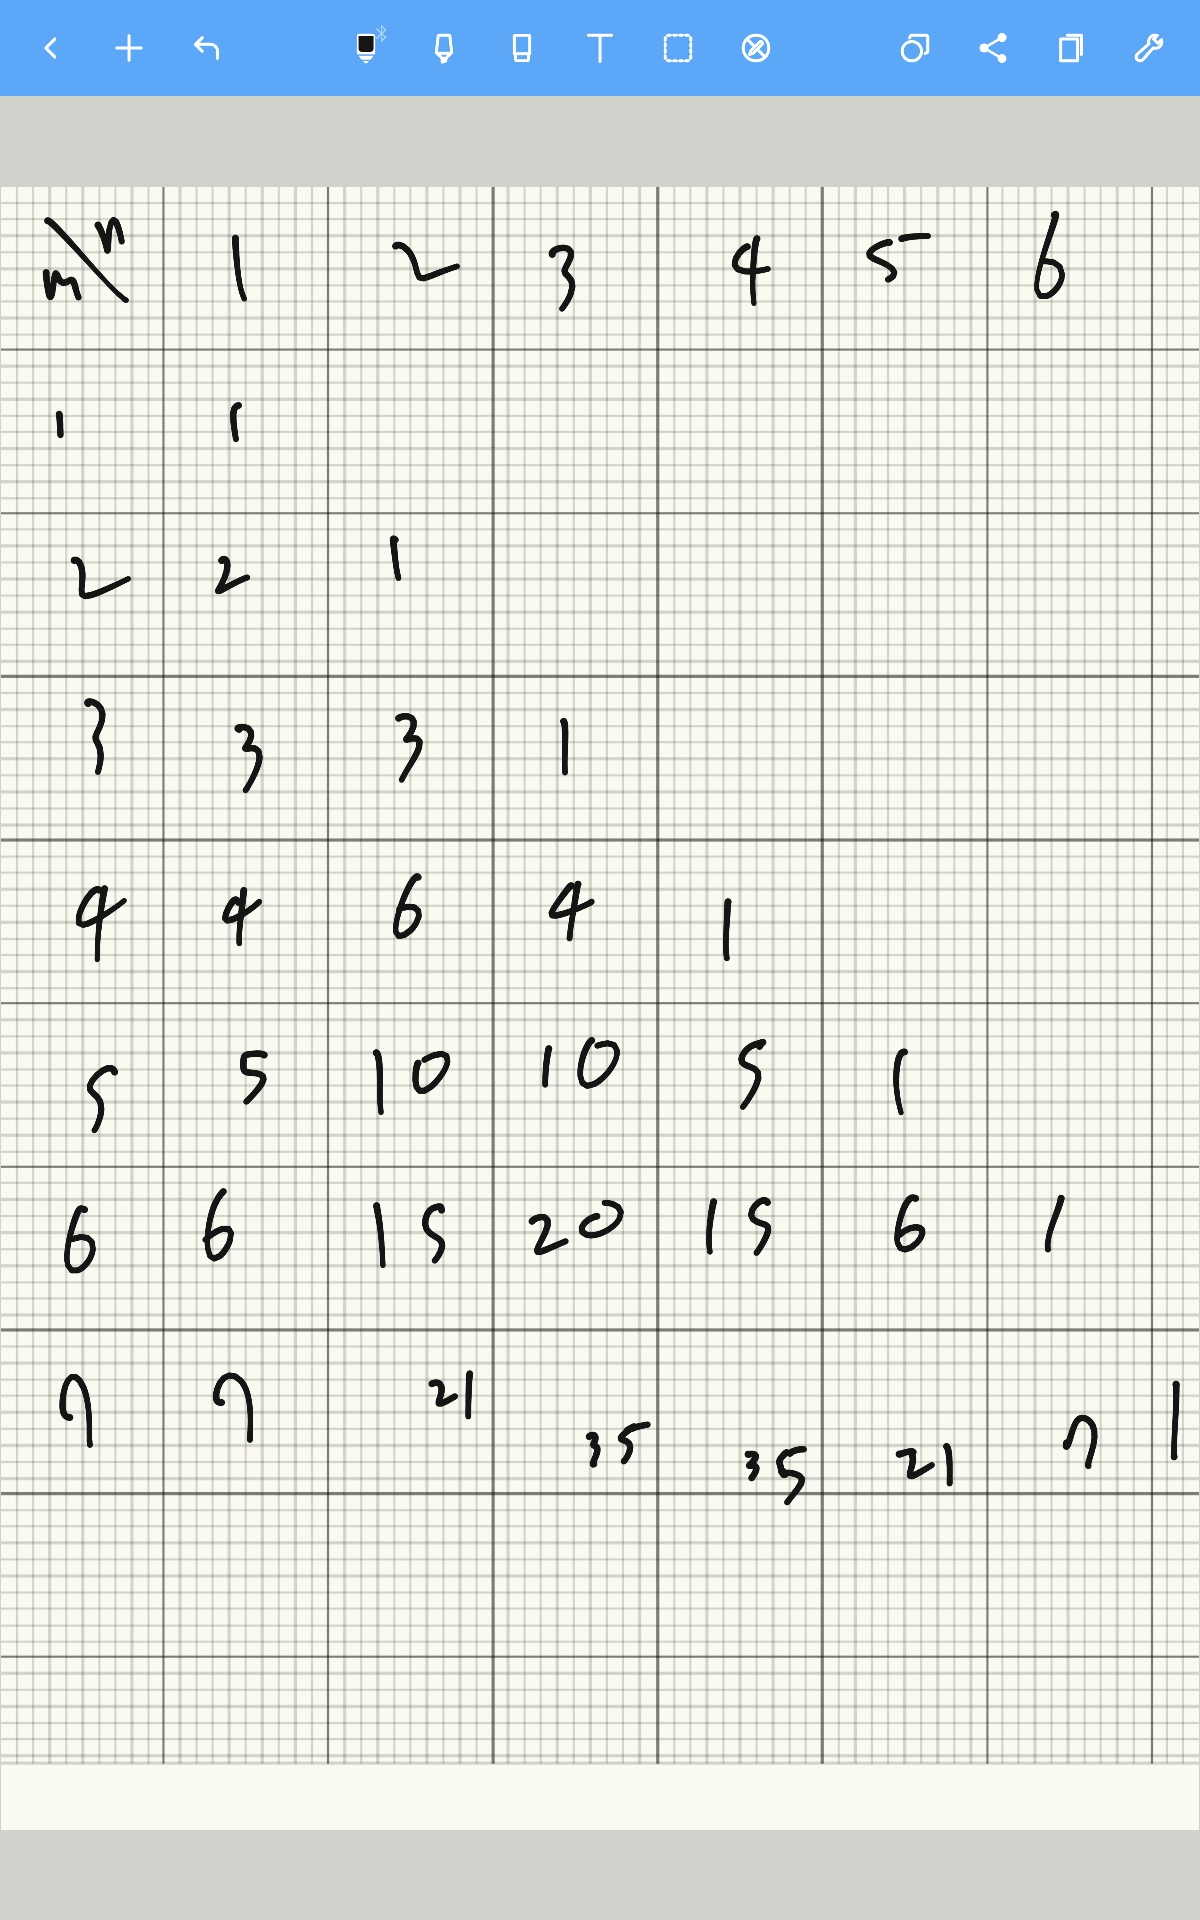 m\n 1 2 3 4 5 6
1 1
2 2 1
3 3 3 1
4 4 6 4 1
5 5 10 10 5 1
6 6 15 20 15 6 1
7 7 21 35 35 21 7 1